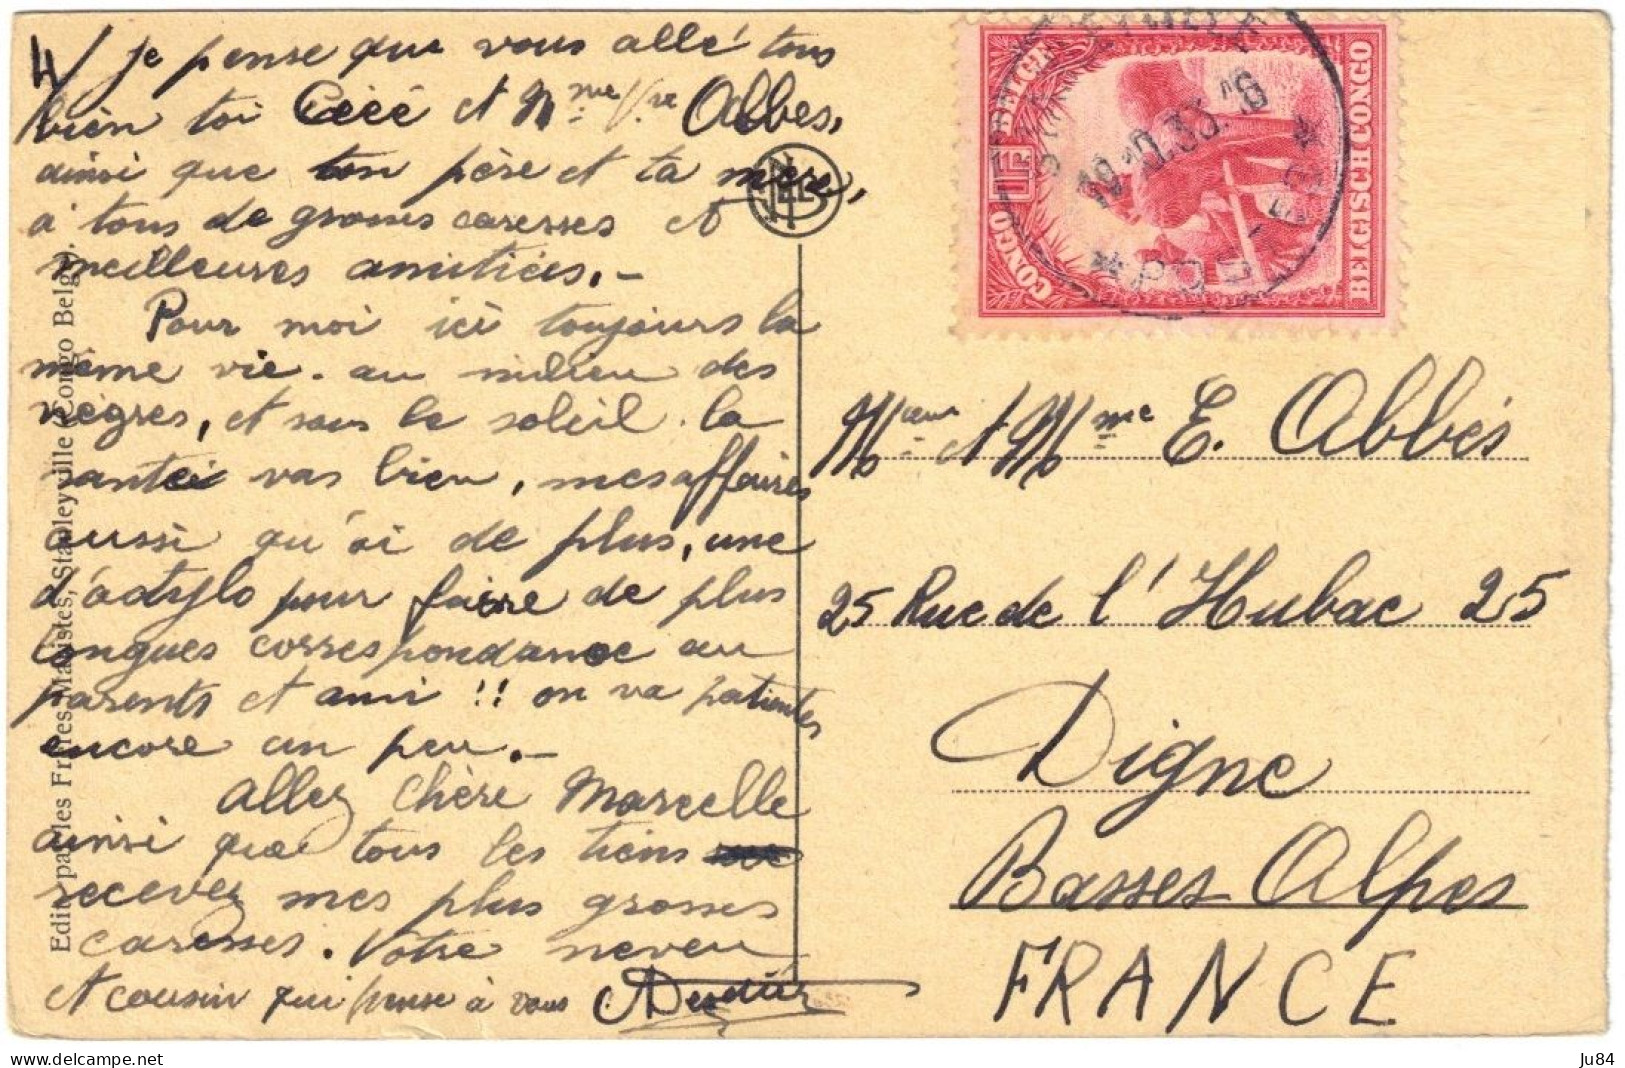 4/ je pense que vous allé tous
bien toi Cécé et Mme Vve Abbes,
ainsi que ton père et ta mère,
a tous de grosses caresses et
meilleures amitiées.-
Pour moi ici toujours la
même vie. au milieu des
nègres, et sous le soleil. la
santéi vas bien, mes affaires
aussi qu'ai de plus, une
d'actylo pour faire de plus
longues correspondance au
parents et ami !! on va patientes
encore un peu.-
Allez chère Marcelle
ainsi que tous les tiens
recevez mes plus grosses
caresses. Votre neveu
et cousin qui pense à vous
Edité par les Frères Maristes, Stanleyville (Congo Belge).
NELS
CONGO BELGE
BELGISCH CONGO
1 F
STANLEYVILLE
19.10.33.16
* POSTES *
Mr et Mme E. Abbés
25 Rue de l'Hubac 25
Digne
Basses Alpes
FRANCE
Ju84